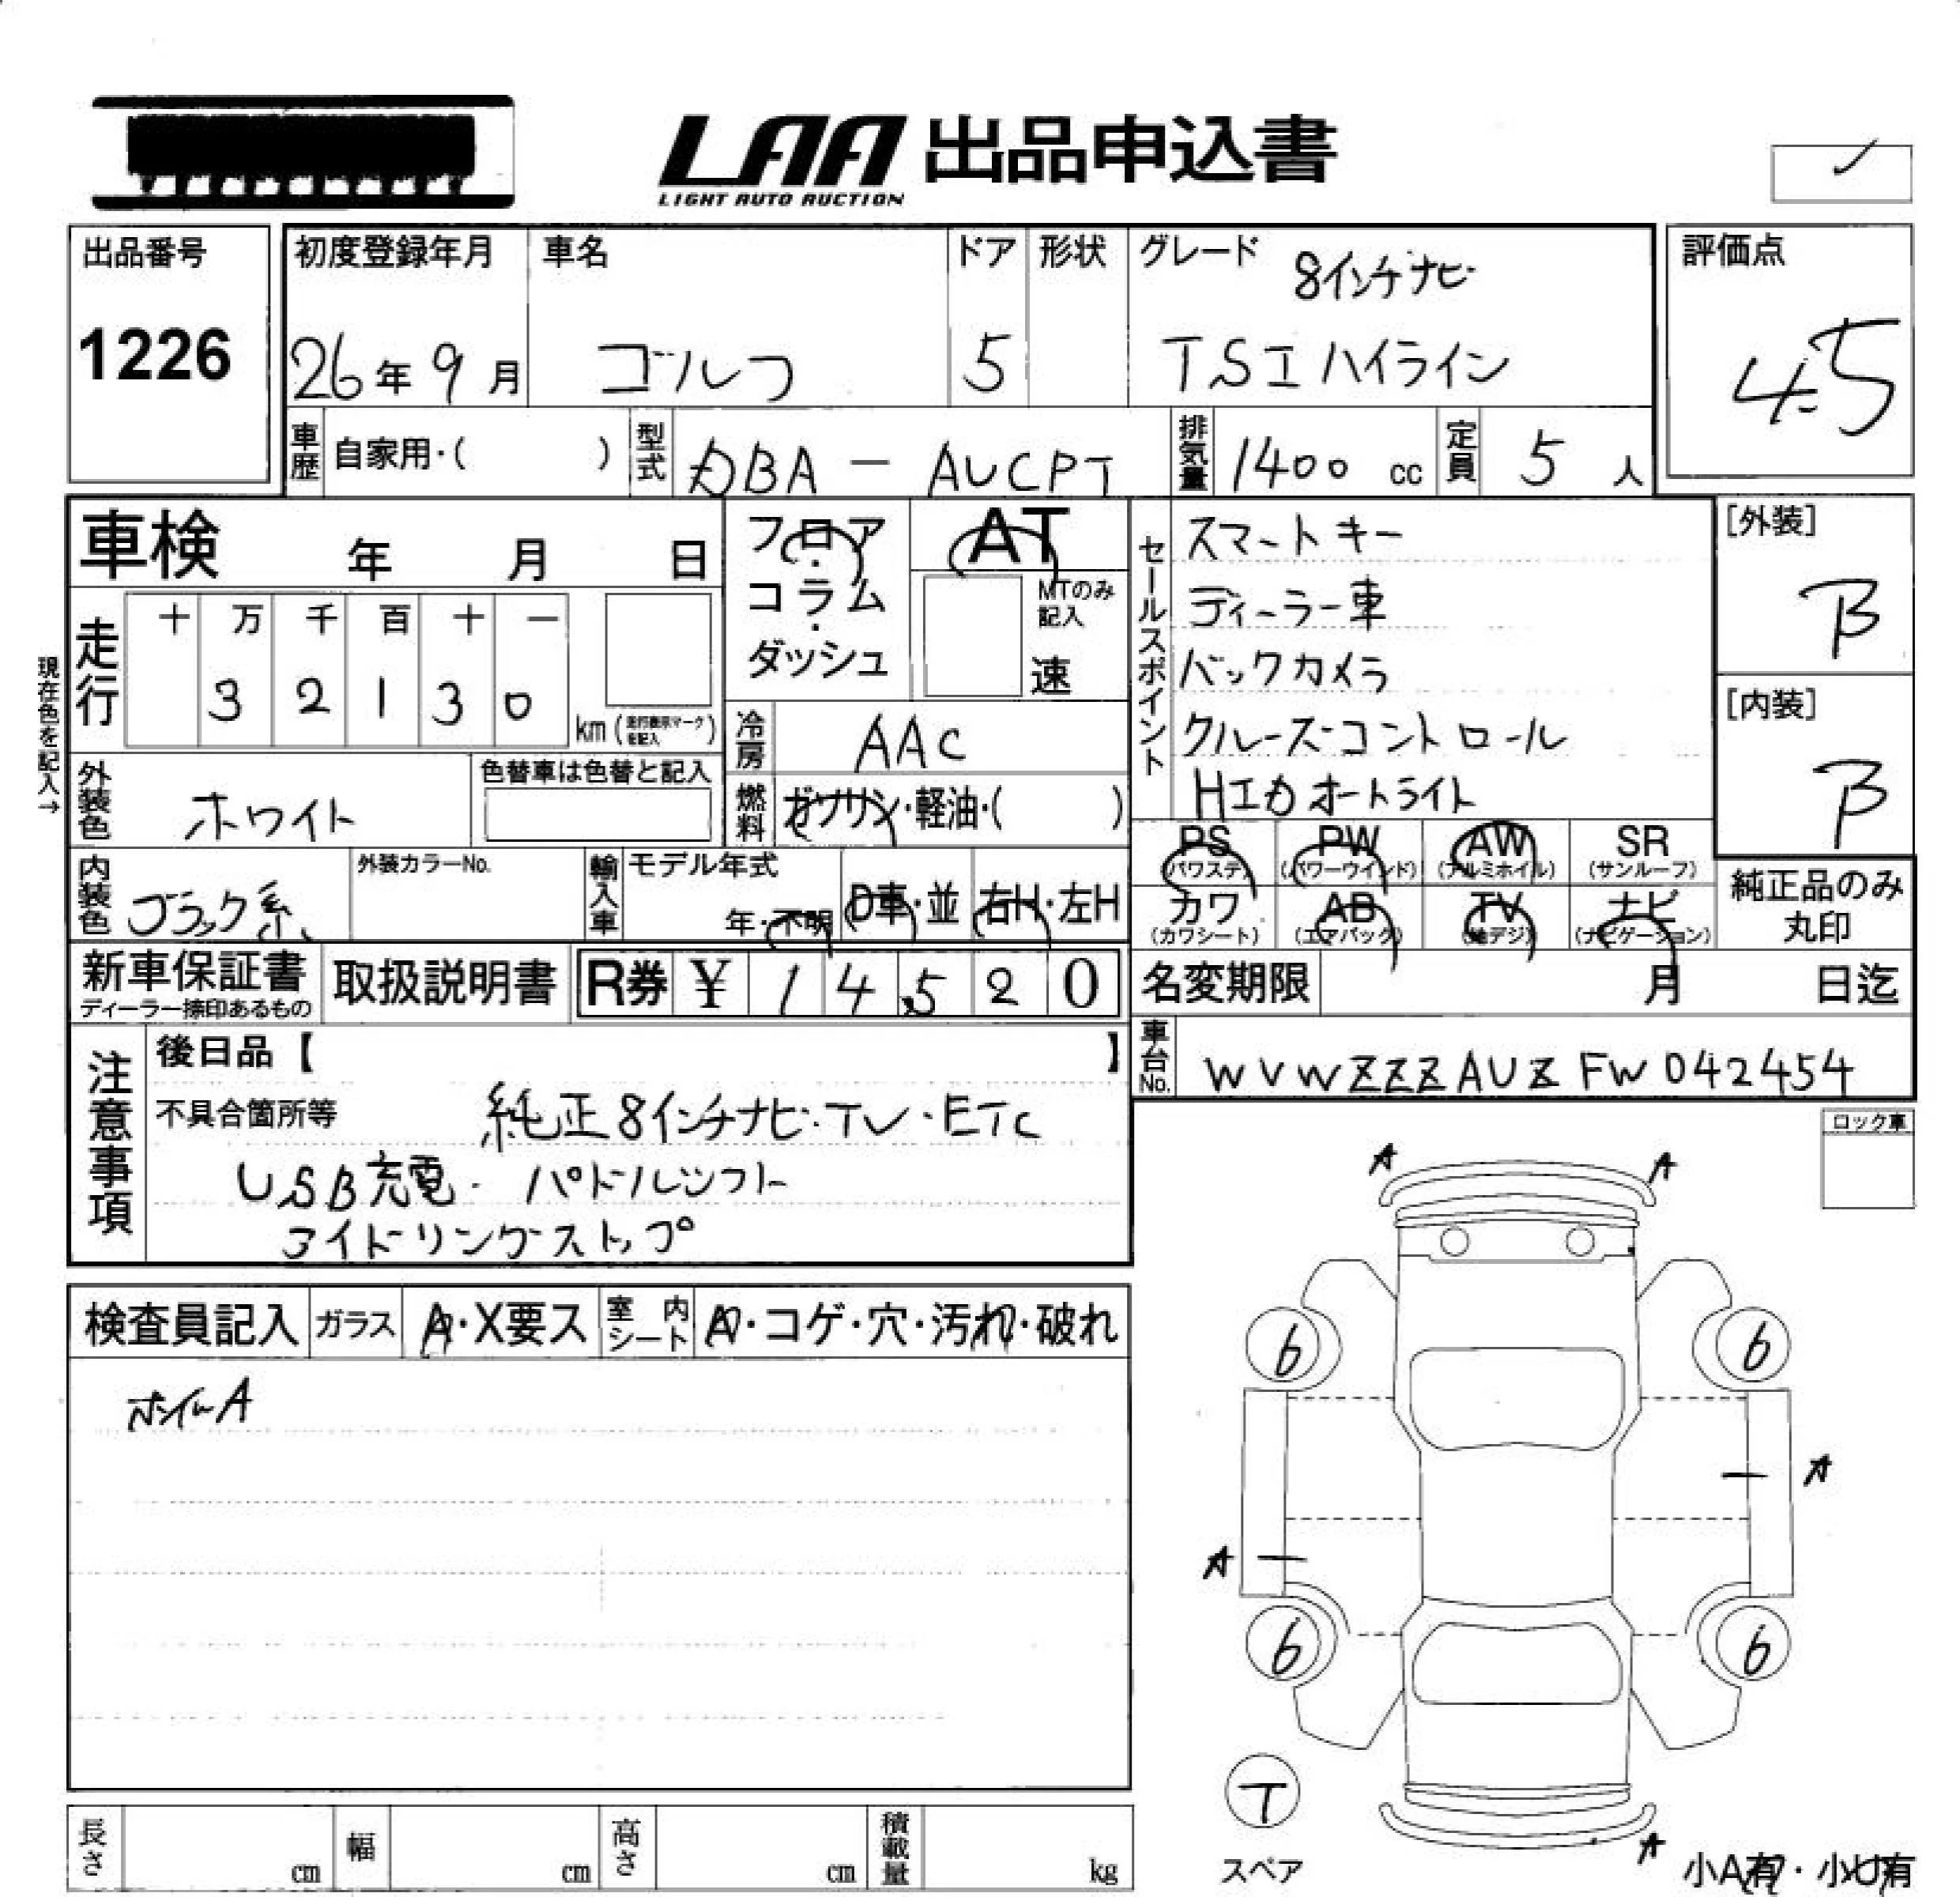 LAA 出品申込書
LIGHT AUTO AUCTION
出品番号
1226
初度登録年月
26年9月
車名
ゴルフ
ドア
5
形状
グレード
8インチナビ
TSIハイライン
評価点
4.5
車歴 自家用・( )
型式 DBA - AUCPT
排気量 1400 cc
定員 5 人
車検 年 月 日
フロア・コラム・ダッシュ
AT
MTのみ記入
速
セールスポイント
スマートキー
ディーラー車
バックカメラ
クルーズコントロール
HID オートライト
[外装]
B
[内装]
B
現在色を記入→
走行
十 万 千 百 十 一
3 2 1 3 0
km (走行表示マークを記入)
冷房 AAC
燃料 ガソリン・軽油・( )
外装色 ホワイト
色替車は色替と記入
内装色 ブラック系
外装カラーNo.
輸入車
モデル年式
年・不明
D車・並
右H・左H
PS (パワステ)
PW (パワーウインド)
AW (アルミホイル)
SR (サンルーフ)
カワ (カワシート)
AB (エアバック)
TV (地デジ)
ナビ (ナビゲーション)
純正品のみ丸印
新車保証書
ディーラー捺印あるもの
取扱説明書
R券 ¥ 14520
名変期限 月 日迄
車台No. WVWZZZAUZFW042454
注意事項
後日品【 】
不具合箇所等 純正8インチナビ・TV・ETC
USB充電・パドルシフト
アイドリングストップ
ロック車
検査員記入
ガラス A・X要ス
室内シート A・コゲ・穴・汚れ・破れ
ホイルA
A A
6 6
A
A
6 6
T
スペア
A
小A有・小U有
長さ cm
幅 cm
高さ cm
積載量 kg